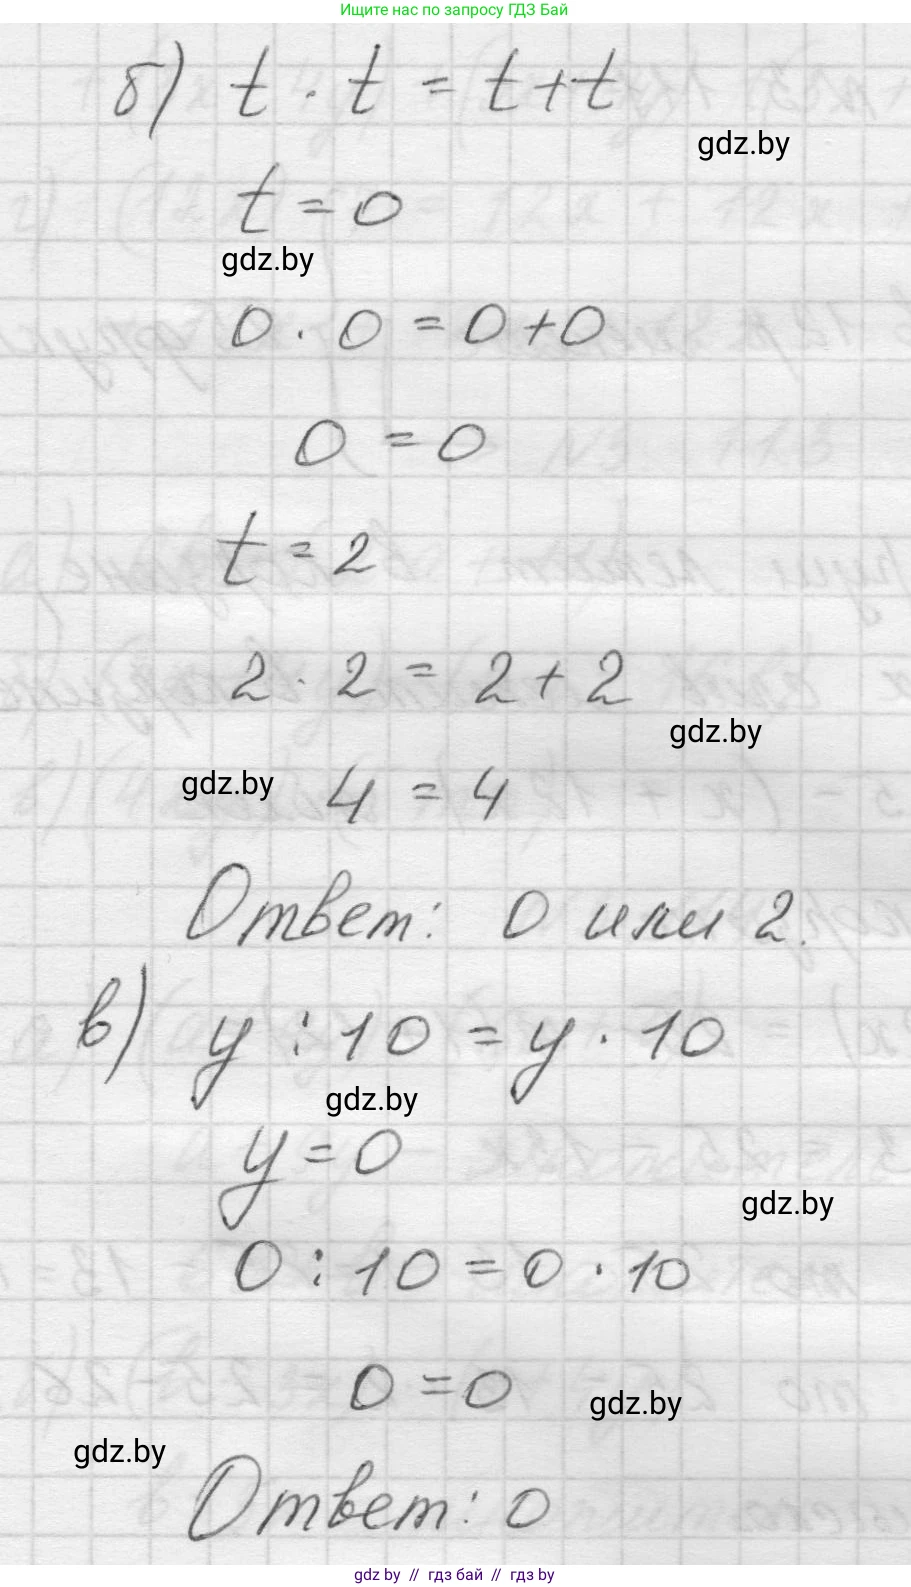 Ищите нас по запросу ГДЗ Бай
б) t · t = t + t
gdz.by
t = 0
gdz.by
0 · 0 = 0 + 0
0 = 0
t = 2
2 · 2 = 2 + 2
gdz.by
gdz.by
4 = 4
Ответ: 0 или 2.
в) y : 10 = y · 10
gdz.by
y = 0
gdz.by
0 : 10 = 0 · 10
0 = 0
gdz.by
gdz.by
Ответ: 0
gdz by // гдз бай // гдз by